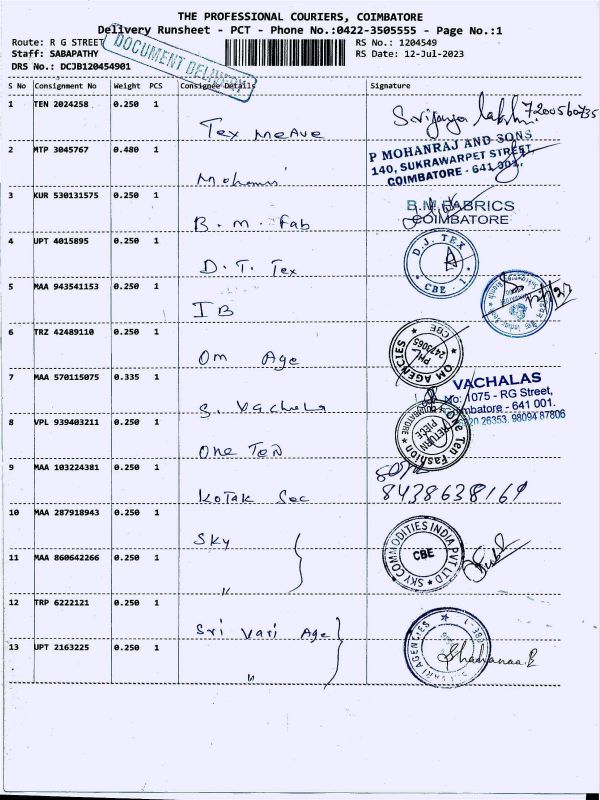 THE PROFESSIONAL COURIERS, COIMBATORE
Delivery Runsheet - PCT - Phone No.:0422-3505555 - Page No.:1
Route: R G STREET
RS No.: 1204549
Staff: SABAPATHY
RS Date: 12-Jul-2023
DRS No.: DCJB120454901
DOCUMENT DELIVERY
S No Consignment No Weight PCS Consignee Details Signature
1 TEN 2024258 0.250 1
Tex MeAve
7200560735
2 MTP 3045767 0.480 1
P MOHANRAJ AND SONS
140, SUKRAWARPET STREET,
COIMBATORE - 641 001.
3 KUR 530131575 0.250 1
B. m. Fab
B.M.FABRICS
COIMBATORE
4 UPT 4015895 0.250 1
D. T. Tex
D.J. TEX
CBE - 1
5 MAA 943541153 0.250 1
IB
6 TRZ 42489110 0.250 1
Om Age
OM AGENCIES
CBE
PH: 2473065
7 MAA 570115075 0.335 1
S. Vachala
VACHALAS
No: 1075 - RG Street,
Coimbatore - 641 001.
26353, 98094 87806
8 VPL 939403211 0.250 1
One Ten
One Ten Fashion
COIMBATORE
RETURN PIECE
9 MAA 103224381 0.250 1
Kotak Sec
8438638169
10 MAA 287918943 0.250 1
Sky
SKY COMMODITIES INDIA PVT LTD
CBE
11 MAA 860642266 0.250 1
"
12 TRP 6222121 0.250 1
Sri Vari Age
VARI AGENCIES
13 UPT 2163225 0.250 1
"